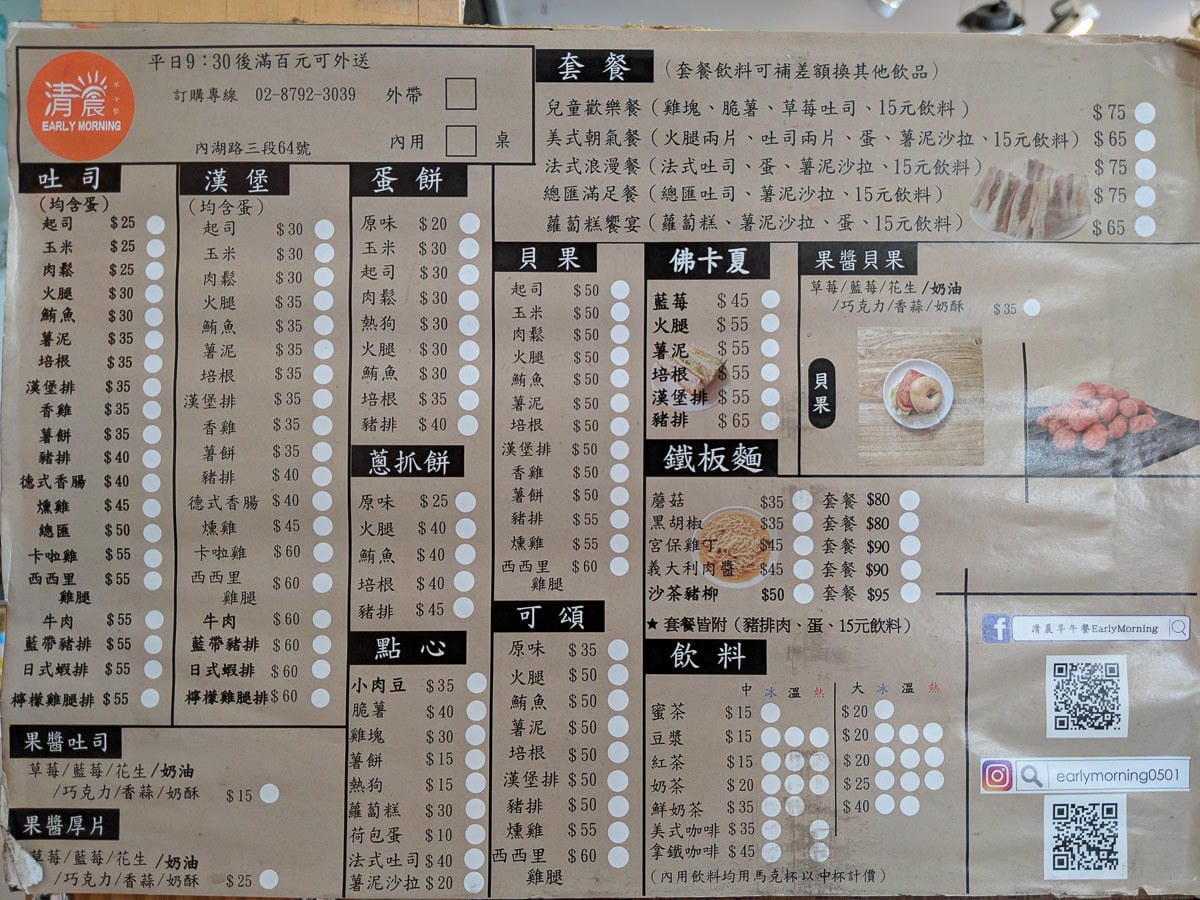 清晨
早午餐
EARLY MORNING
平日9:30後滿百元可外送
訂購專線 02-8792-3039 外帶
內湖路三段64號 內用 桌
套餐 (套餐飲料可補差額換其他飲品)
兒童歡樂餐(雞塊、脆薯、草莓吐司、15元飲料) $75
美式朝氣餐(火腿兩片、吐司兩片、蛋、薯泥沙拉、15元飲料) $65
法式浪漫餐(法式吐司、蛋、薯泥沙拉、15元飲料) $75
總匯滿足餐(總匯吐司、薯泥沙拉、15元飲料) $75
蘿蔔糕饗宴(蘿蔔糕、薯泥沙拉、蛋、15元飲料) $65
吐司
(均含蛋)
起司 $25
玉米 $25
肉鬆 $25
火腿 $30
鮪魚 $30
薯泥 $35
培根 $35
漢堡排 $35
香雞 $35
薯餅 $35
豬排 $40
德式香腸 $40
燻雞 $45
總匯 $50
卡啦雞 $55
西西里 $55
雞腿
牛肉 $55
藍帶豬排 $55
日式蝦排 $55
檸檬雞腿排 $55
果醬吐司
草莓/藍莓/花生/奶油
/巧克力/香蒜/奶酥 $15
果醬厚片
草莓/藍莓/花生/奶油
/巧克力/香蒜/奶酥 $25
漢堡
(均含蛋)
起司 $30
玉米 $30
肉鬆 $30
火腿 $35
鮪魚 $35
薯泥 $35
培根 $35
漢堡排 $35
香雞 $35
薯餅 $35
豬排 $40
德式香腸 $40
燻雞 $45
卡啦雞 $60
西西里 $60
雞腿
牛肉 $60
藍帶豬排 $60
日式蝦排 $60
檸檬雞腿排 $60
蛋餅
原味 $20
玉米 $30
起司 $30
肉鬆 $30
熱狗 $30
火腿 $30
鮪魚 $30
培根 $35
豬排 $40
蔥抓餅
原味 $25
火腿 $40
鮪魚 $40
培根 $40
豬排 $45
點心
小肉豆 $35
脆薯 $40
雞塊 $30
薯餅 $15
熱狗 $15
蘿蔔糕 $30
荷包蛋 $10
法式吐司 $40
薯泥沙拉 $20
貝果
起司 $50
玉米 $50
肉鬆 $50
火腿 $50
鮪魚 $50
薯泥 $50
培根 $50
漢堡排 $50
香雞 $50
薯餅 $50
豬排 $55
燻雞 $55
西西里 $60
雞腿
可頌
原味 $35
火腿 $50
鮪魚 $50
薯泥 $50
培根 $50
漢堡排 $50
豬排 $50
燻雞 $55
西西里 $60
雞腿
佛卡夏
藍莓 $45
火腿 $55
薯泥 $55
培根 $55
漢堡排 $55
豬排 $65
果醬貝果
草莓/藍莓/花生/奶油
/巧克力/香蒜/奶酥 $35
貝果
鐵板麵
蘑菇 $35 套餐 $80
黑胡椒 $35 套餐 $80
宮保雞丁 $45 套餐 $90
義大利肉醬 $45 套餐 $90
沙茶豬柳 $50 套餐 $95
★套餐皆附(豬排肉、蛋、15元飲料)
飲料
中 冰 溫 熱 大 冰 溫 熱
蜜茶 $15 $20
豆漿 $15 $20
紅茶 $15 $20
奶茶 $20 $25
鮮奶茶 $35 $40
美式咖啡 $35
拿鐵咖啡 $45
(內用飲料均用馬克杯以中杯計價)
f 清晨早午餐EarlyMorning
earlymorning0501